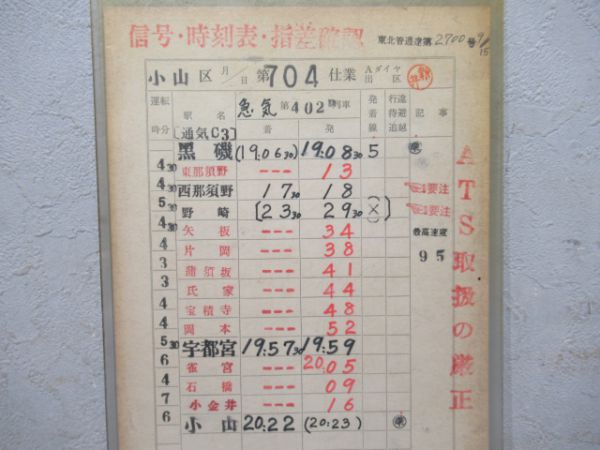 信号・時刻表・指差確認
東北管通達第2700号9/15
小山区 月/日 第704仕業 Aダイヤ 出区
運転時分 駅名 急気第402列車 着 発 発着線 行違待避追越 記事
〔通気C3〕
黒磯 (19.0630) 19.0830 5
430 東那須野 --- 13
4 西那須野 1730 18 要注
530 野崎 〔2330 2930 (×)〕 要注
430 矢板 --- 34 最高速度
4 片岡 --- 38 95
3 蒲須坂 --- 41
3 氏家 --- 44
4 宝積寺 --- 48
4 岡本 --- 52
530 宇都宮 19:5730 19:59
6 雀宮 --- 20:05
4 石橋 --- 09
7 小金井 --- 16
6 小山 20:22 (20:23)
ATS取扱の厳正